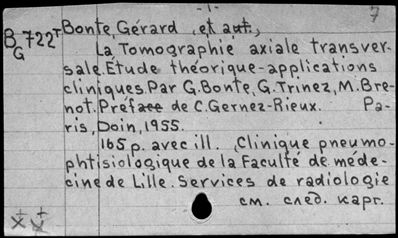 -1-
7
B 722т Bonte, Gérard, et aut.,
G
La Tomographie axiale transver-
sale. Etude théorique-applications
cliniques. Par G. Bonte, G. Trinez, M. Bre-
not. Préface de C. Gernez-Rieux. Pa-
ris, Doin, 1955.
165 p. avec ill. (Clinique pneumo-
phtisiologique de la Faculté de méde-
cine de Lille. Services de radiologie
см. след. карт.